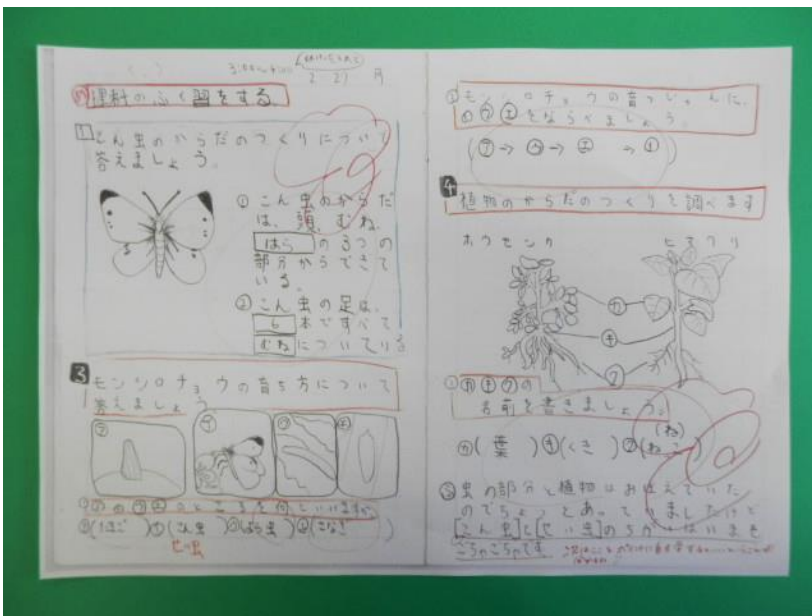 3:00〜4:00
2 21 月
め 理科のふく習をする
1 こん虫のからだのつくりについて
答えましょう。
① こん虫のからだ
は、頭、むね、
はらの3つの
部分からできて
いる。
② こん虫の足は、
6本ですべて
むねについている
3 モンシロチョウの育ち方について
答えましょう
㋐ ㋑ ㋒ ㋓
①㋐㋑㋒㋓のところを何といいますか
㋐(たまご)㋑(こん虫)㋒(よう虫)㋓(さなぎ)
せい虫
② モンシロチョウの育つじゅんに、
㋑㋒㋓をならべましょう。
(㋐→㋒→㋓→㋑)
4 植物のからだのつくりを調べます
ホウセンカ ヒマワリ
㋕
㋖
㋗
① ㋕㋖㋗の
名前を書きましょう。
(ね)
㋕(葉)㋖(くき)㋗(ねっこ)
虫の部分と植物はおぼえていた
のでちょっとあっていましたけど
[こん虫]と[せい虫]のちがいはいまも
ごちゃごちゃです